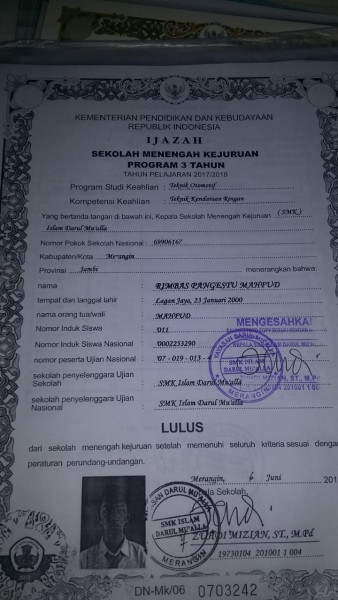 KEMENTERIAN PENDIDIKAN DAN KEBUDAYAAN
REPUBLIK INDONESIA
IJAZAH
SEKOLAH MENENGAH KEJURUAN
PROGRAM 3 TAHUN
TAHUN PELAJARAN 2017/2018
Program Studi Keahlian : Teknik Otomotif
Kompetensi Keahlian : Teknik Kendaraan Ringan
Yang bertanda tangan di bawah ini, Kepala Sekolah Menengah Kejuruan (SMK)
Islam Darul Mu'alla
Nomor Pokok Sekolah Nasional : 69906167
Kabupaten/Kota : Merangin
Provinsi Jambi menerangkan bahwa:
nama : RIMBAS PANGESTU MAHFUD
tempat dan tanggal lahir : Lagan Jaya, 23 Januari 2000
nama orang tua/wali : MAHFUD
Nomor Induk Siswa : 011
Nomor Induk Siswa Nasional : 0002253290
nomor peserta Ujian Nasional : 07-019-013-4
MENGESAHKAN
SMK ISLAM
DARUL MU'ALLA
MERANGIN
sekolah penyelenggara Ujian Sekolah : SMK Islam Darul Mu'alla
sekolah penyelenggara Ujian Nasional : SMK Islam Darul Mu'alla
LULUS
dari sekolah menengah kejuruan setelah memenuhi seluruh kriteria sesuai dengan
peraturan perundang-undangan.
Merangin, Juni
Kepala Sekolah,
SMK ISLAM
DARUL MU'ALLA
MERANGIN
MIZIAN, ST., M.Pd
19730104 201001 1 004
DN-Mk/06 0703242